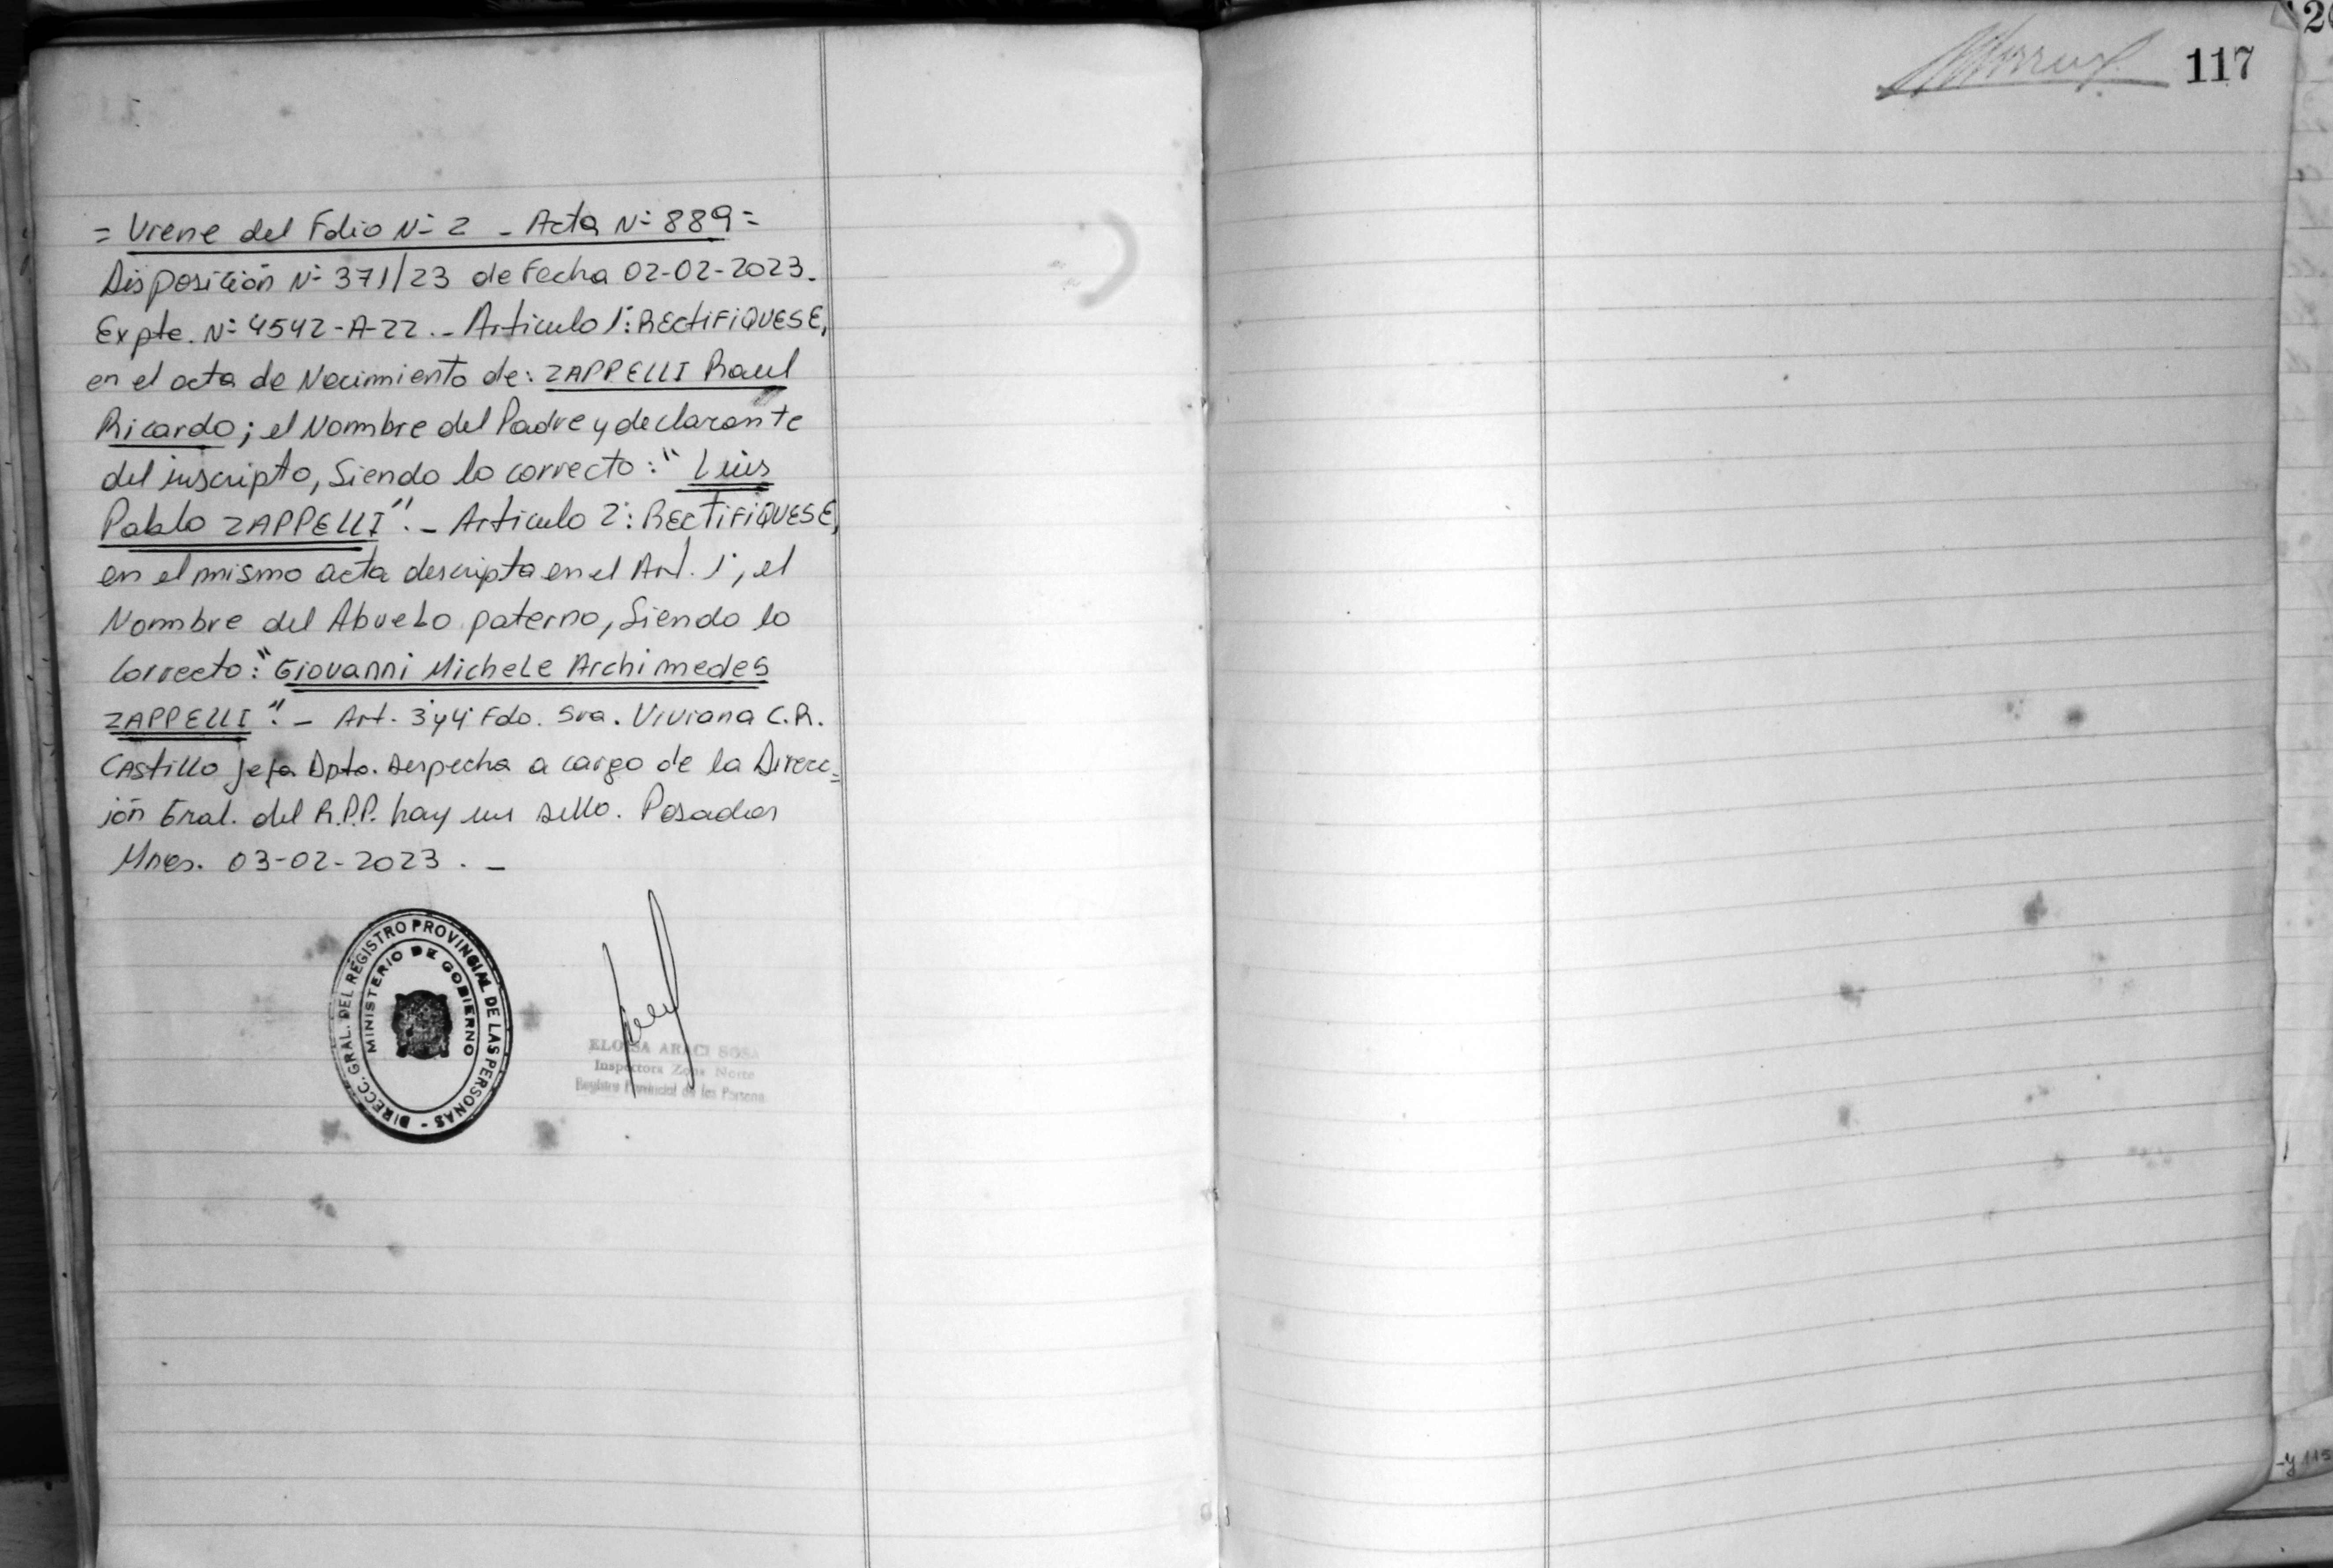 = Viene del Folio Nº 2 - Acta Nº 889 =
Disposición Nº 371/23 de Fecha 02-02-2023.
Expte. Nº 4542-A-22.- Articulo 1º: RECTIFIQUESE,
en el acta de Nacimiento de: ZAPPELLI Raul
Ricardo; el Nombre del Padre y declarante
del inscripto, Siendo lo correcto: " Luis
Pablo ZAPPELLI".- Articulo 2º: RECTIFIQUESE,
en el mismo acta descripta en el Art. 1º, el
Nombre del Abuelo paterno, Siendo lo
Correcto: "Giovanni Michele Archimedes
ZAPPELLI".- Art. 3º y 4º Fdo. Sra. Viviana C.R.
Castillo Jefa Dpto. Despacho a cargo de la Direcc=
ión Gral. del R.P.P. hay un sello. Posadas
Mnes. 03-02-2023.-
DIRECC. GRAL. DEL REGISTRO PROVINCIAL DE LAS PERSONAS -
MINISTERIO DE GOBIERNO
ELOISA ARACI SOSA
Inspectora Zona Norte
Registro Provincial de las Persona
117